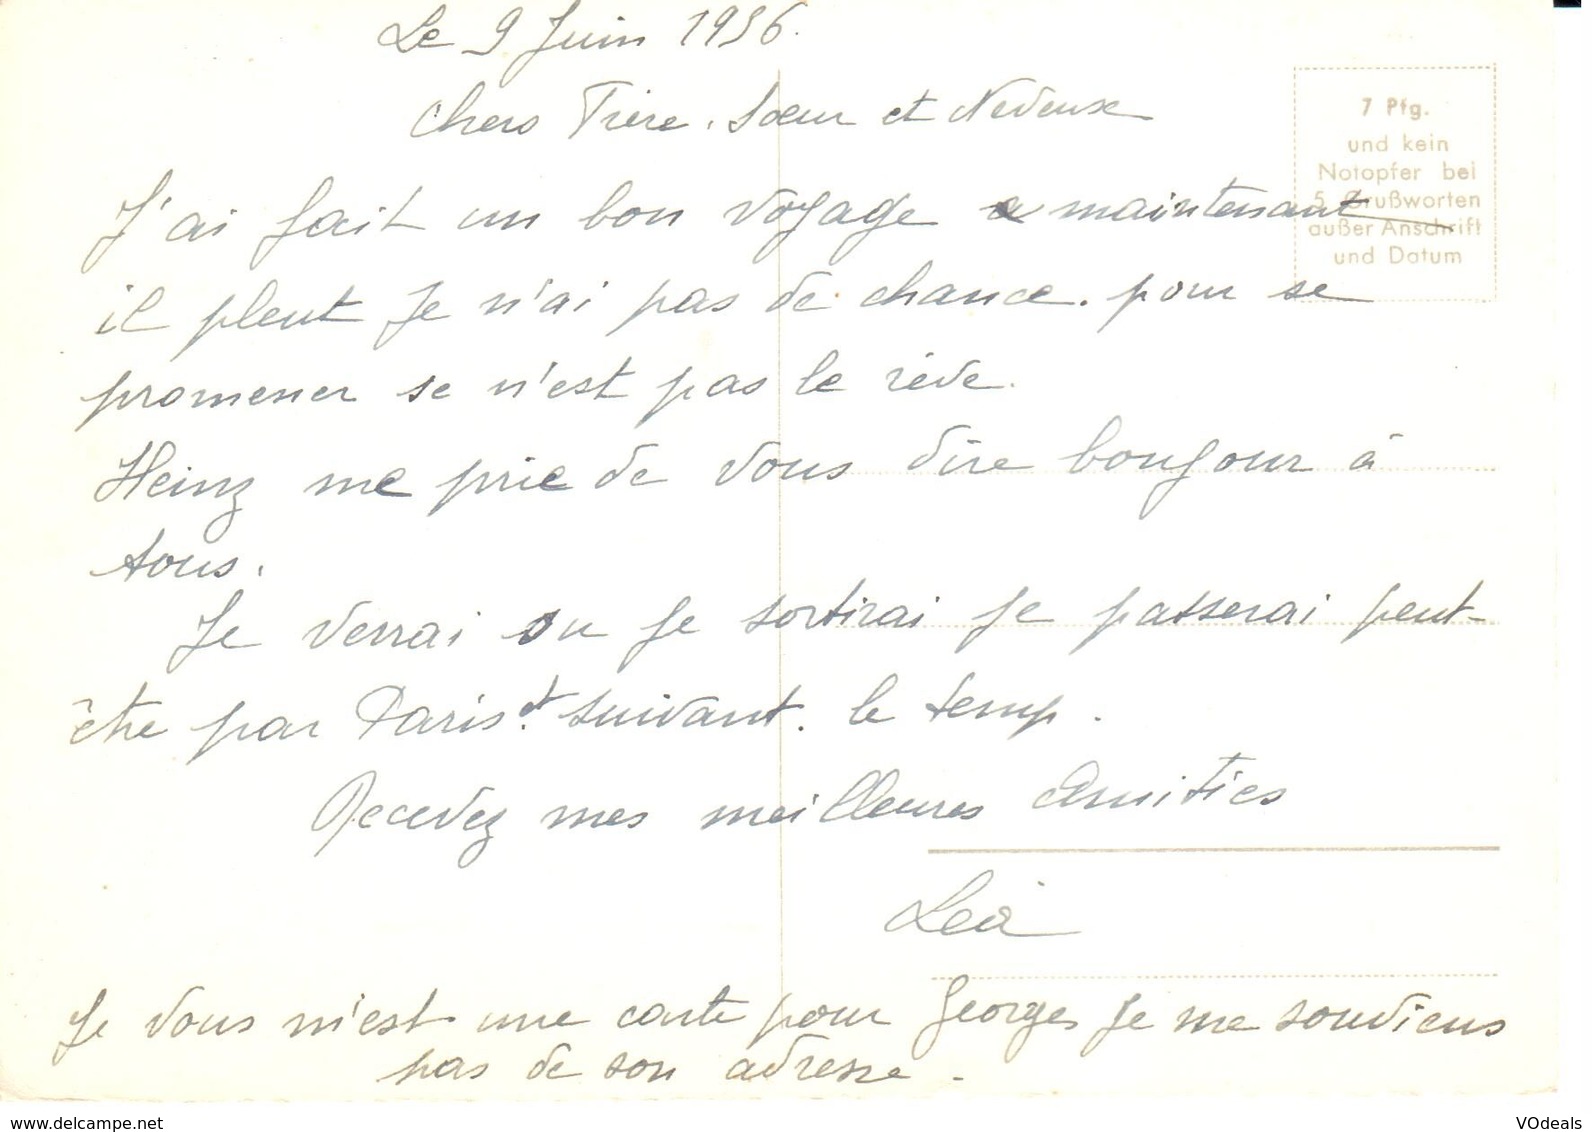 Le 9 Juin 1956.
Chers Frère, Sœur et Neveux
J'ai fait un bon voyage a maintenant
il pleut Je n'ai pas de chance. pour se
promener se n'est pas le rève.
Heinz me prie de vous dire bonjour à
tous.
Je verrai ou je sortirai je passerai peut-
être par Paris et suivant. le temp.
Recevez mes meilleures Amitiés
Léa
Je vous n'est une carte pour Georges Je me souviens
pas de son adresse.
7 Pfg.
und kein
Notopfer bei
5 Grußworten
außer Anschrift
und Datum
www.delcampe.net
VOdeals